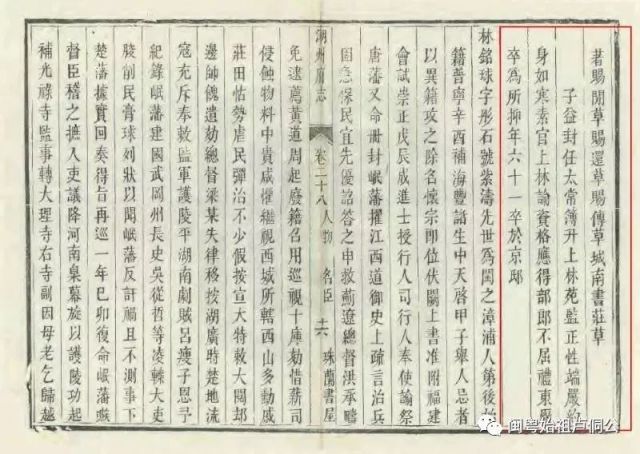 著賜閒草賜還草賜傳草城南書莊草
子益封任太常簿升上林苑監正性端嚴約
身如寒素官上林論資格應得部郎不屈禮東廠
卒為所抑年六十一卒於京邸
林銘球字彤石號紫濤先世為閩之漳浦人第後始
籍普寧辛酉補海豐諸生中天啓甲子舉人忌者
以異籍攻之除名懷宗即位伏闕上書准附福建
會試崇正戊辰成進士授行人司行人奉使諭祭
唐藩又命冊封岷藩擢江西道御史上疏言治兵
固急保民宜先優詔答之申救薊遼總督洪承疇
潮州府志
卷二十八
人物
名臣
十六
珠蘭書屋
免逮薦黃道周起廢籍召用巡視十庫劾惜薪司
侵蝕物料中貴咸懼繼視西城所轄西山多勳戚
莊田怙勢虐民彈治不少假按宣大特敕大同郤
邊帥餽遺劾總督梁某失律移按湖廣時楚地流
寇充斥奉敕監軍護陵平湖南劇賊呂瘦子恩予
紀錄岷藩建國武岡州長史吳從哲等凌轢大吏
朘削民膏球列狀以聞岷藩反訐福且不測事下
楚藩據實回奏得旨再巡一年己卯復命岷藩嗾
督臣稽之撫人吏議降河南臬幕旋以護陵功起
補光祿寺監事轉大理寺右寺副因母老乞歸越
閩粵始祖卢侗公